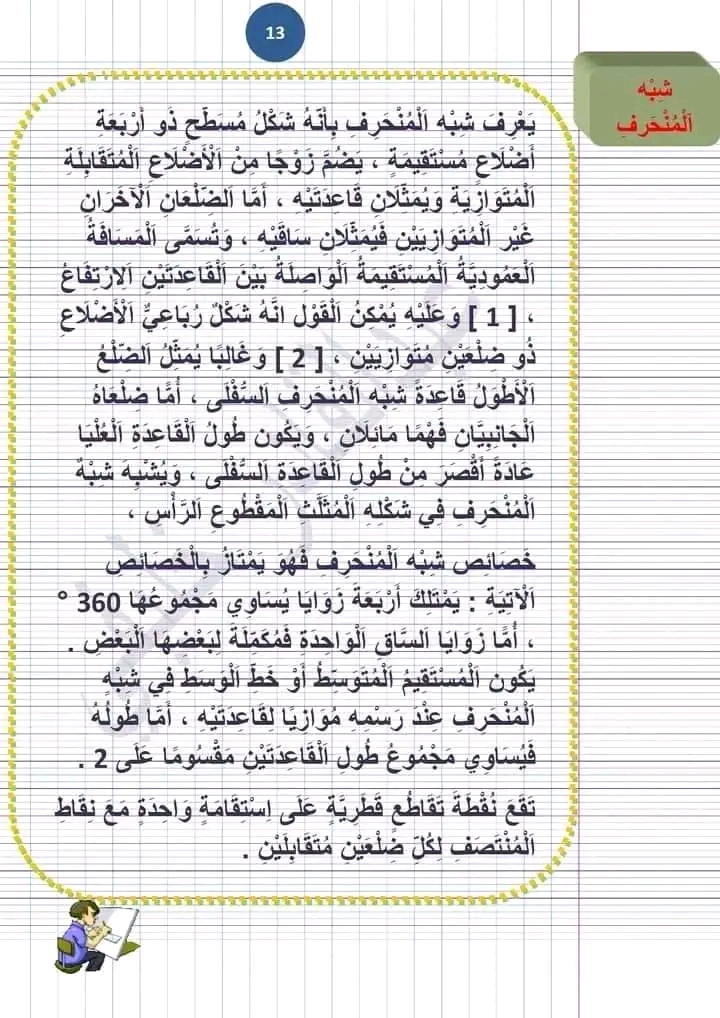 13
شِبْه
اَلْمُنْحَرِفِ
يَعْرِفَ شِبْه اَلْمُنْحَرِفِ بِأَنَّهُ شَكْلُ مُسَطَّحٍ ذَو أَرْبَعَةِ
أَضْلَاعِ مُسْتَقِيمَةٍ ، يَضُمَّ زَوْجًا مِنْ اَلْأَضْلَاعِ اَلْمُتَقَابِلَةِ
اَلْمُتَوَازِيَةِ وَيُمَثِّلَانِ قَاعِدَتَيْهِ ، أَمَّا اَلضِّلْعَانِ اَلْآخَرَانِ
غَيْر اَلْمُتَوَازِيَيْنِ فَيُمَثِّلَانِ سَاقَيْهِ ، وَتُسَمَّى اَلْمَسَافَةُ
اَلْعَمُودِيَّةُ اَلْمُسْتَقِيمَةُ اَلْوَاصِلَةُ بَيْنَ اَلْقَاعِدَتَيْنِ اَلِارْتِفَاعُ
، [ 1 ] وَعَلَيْهِ يُمْكِنُ اَلْقَوْل انَّهُ شَكْلٌ رُبَاعِيٌّ اَلْأَضْلَاعِ
ذُو ضِلْعَيْنِ مُتَوَازِيَيْنِ ، [ 2 ] وَغَالِبًا يُمَثِّلُ اَلضِّلْعُ
اَلْأَطْوَلُ قَاعِدَةَ شِبْه اَلْمُنْحَرِفِ اَلسُّفْلَى ، أَمَّا ضِلْعَاهُ
اَلْجَانِبِيَّانِ فَهُمَا مَائِلَانِ ، وَيَكُون طُولُ اَلْقَاعِدَةِ اَلْعُلْيَا
عَادَةَ أَقْصَرَ مِنْ طُولِ اَلْقَاعِدَةِ اَلسُّفْلَى ، وَيُشْبِهَ شِبْهُ
اَلْمُنْحَرِفِ فِي شَكْلِهِ اَلْمُثَلَّثِ اَلْمَقْطُوعِ اَلرَّأْسِ ،
خَصَائِص شِبْه اَلْمُنْحَرِفِ فَهُوَ يَمْتَازُ بِالْخَصَائِصِ
اَلْآتِيَةِ : يَمْتَلِكَ أَرْبَعَةَ زَوَايَا يُسَاوِي مَجْمُوعُهَا 360 °
، أَمَّا زَوَايَا اَلسَّاقِ اَلْوَاحِدَةِ فَمُكَمِّلَةً لِبَعْضِهَا اَلْبَعْضِ .
يَكُون اَلْمُسْتَقِيمُ اَلْمُتَوَسِّطُ أَوْ خَطِّ اَلْوَسَطِ فِي شِبْهِ
اَلْمُنْحَرِفِ عِنْدَ رَسْمِهِ مُوَازِيًا لِقَاعِدَتَيْهِ ، أَمَّا طُولُهُ
فَيُسَاوِي مَجْمُوعُ طُولِ اَلْقَاعِدَتَيْنِ مَقْسُومًا عَلَى 2 .
تَقَعَ نُقْطَةَ تَقَاطُعِ قَطَرِيَّةٍ عَلَى اِسْتِقَامَةٍ وَاحِدَةٍ مَعَ نِقَاطِ
اَلْمُنْتَصَفِ لِكُلِّ ضِلْعَيْنِ مُتَقَابِلَيْنِ .